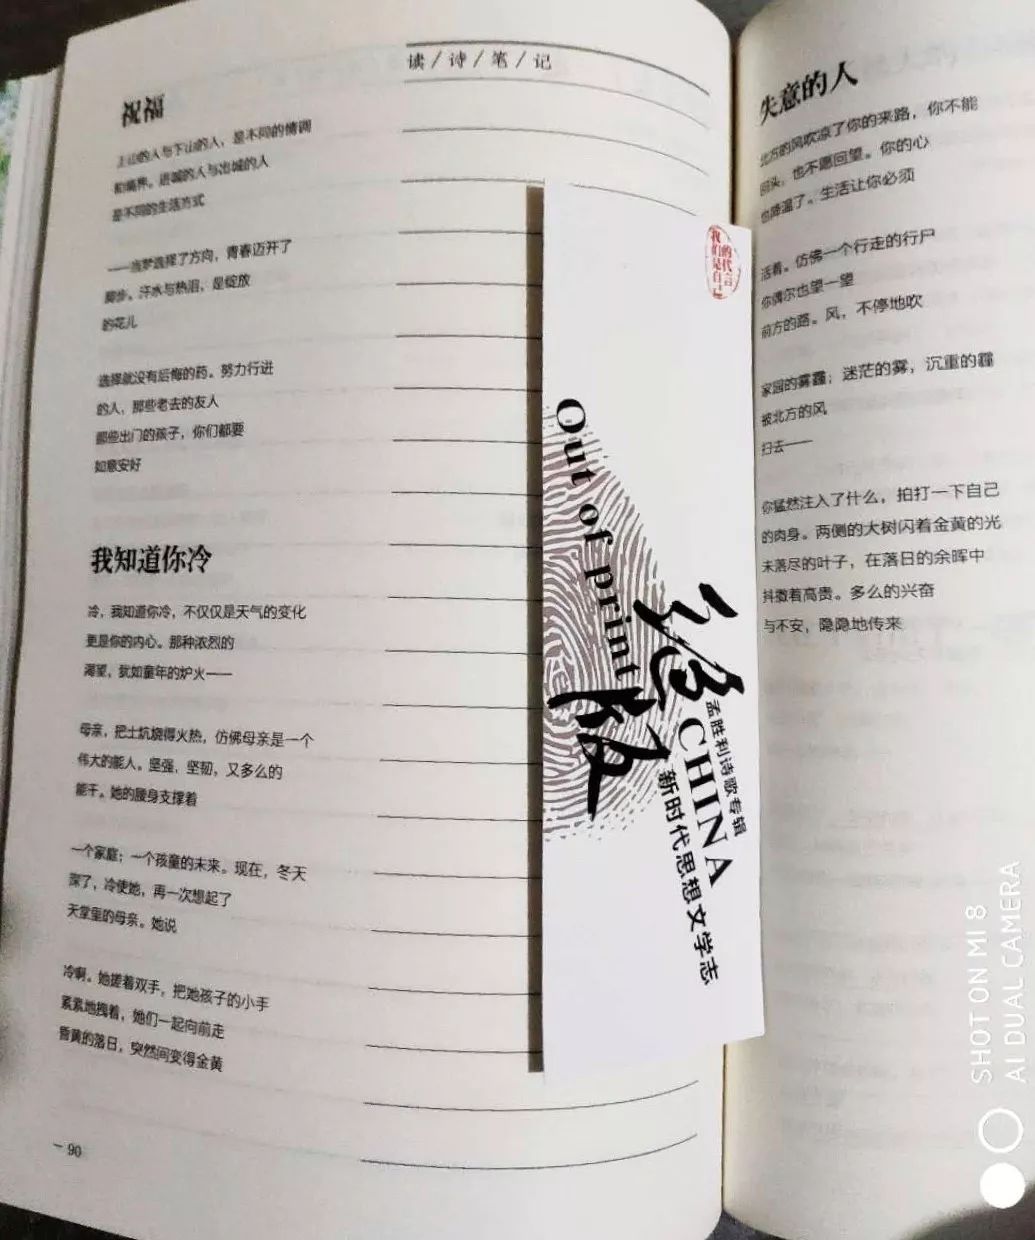 读/诗/笔/记
祝福
上山的人与下山的人，是不同的情调
和境界。进城的人与出城的人
是不同的生活方式
——当梦选择了方向，青春迈开了
脚步。汗水与热泪，是绽放
的花儿
选择就没有后悔的药。努力行进
的人，那些老去的友人
那些出门的孩子，你们都要
如意安好
我知道你冷
冷，我知道你冷，不仅仅是天气的变化
更是你的内心。那种浓烈的
渴望，犹如童年的炉火——
母亲，把土炕烧得火热，仿佛母亲是一个
伟大的能人。坚强，坚韧，又多么的
能干。她的腰身支撑着
一个家庭；一个孩童的未来。现在，冬天
深了，冷使她，再一次想起了
天堂里的母亲。她说
冷啊。她搓着双手，把她孩子的小手
紧紧地拽着，她们一起向前走
昏黄的落日，突然间变得金黄
90
我们是自己
的代言
Out of print
绝版
CHINA
孟胜利诗歌专辑
新时代思想文学志
失意的人
北方的风吹凉了你的来路，你不能
回头，也不愿回望。你的心
也降温了。生活让你必须
活着。仿佛一个行走的行尸
你偶尔也望一望
前方的路。风，不停地吹
家园的雾霾；迷茫的雾，沉重的霾
被北方的风
扫去——
你猛然注入了什么，拍打一下自己
的肉身。两侧的大树闪着金黄的光
未落尽的叶子，在落日的余晖中
抖擞着高贵。多么的兴奋
与不安，隐隐地传来
SHOT ON MI 8
AI DUAL CAMERA